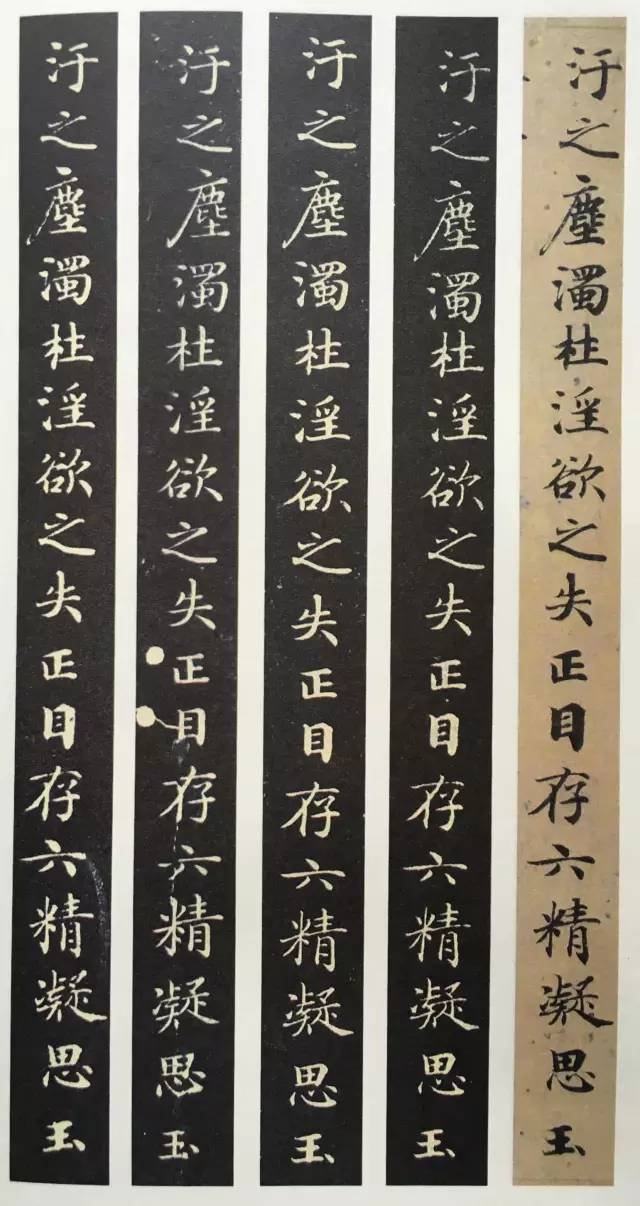 汙之塵濁杜淫欲之失正目存六精凝思玉
汙之塵濁杜淫欲之失正目存六精凝思玉
汙之塵濁杜淫欲之失正目存六精凝思玉
汙之塵濁杜淫欲之失正目存六精凝思玉
汙之塵濁杜淫欲之失正目存六精凝思玉